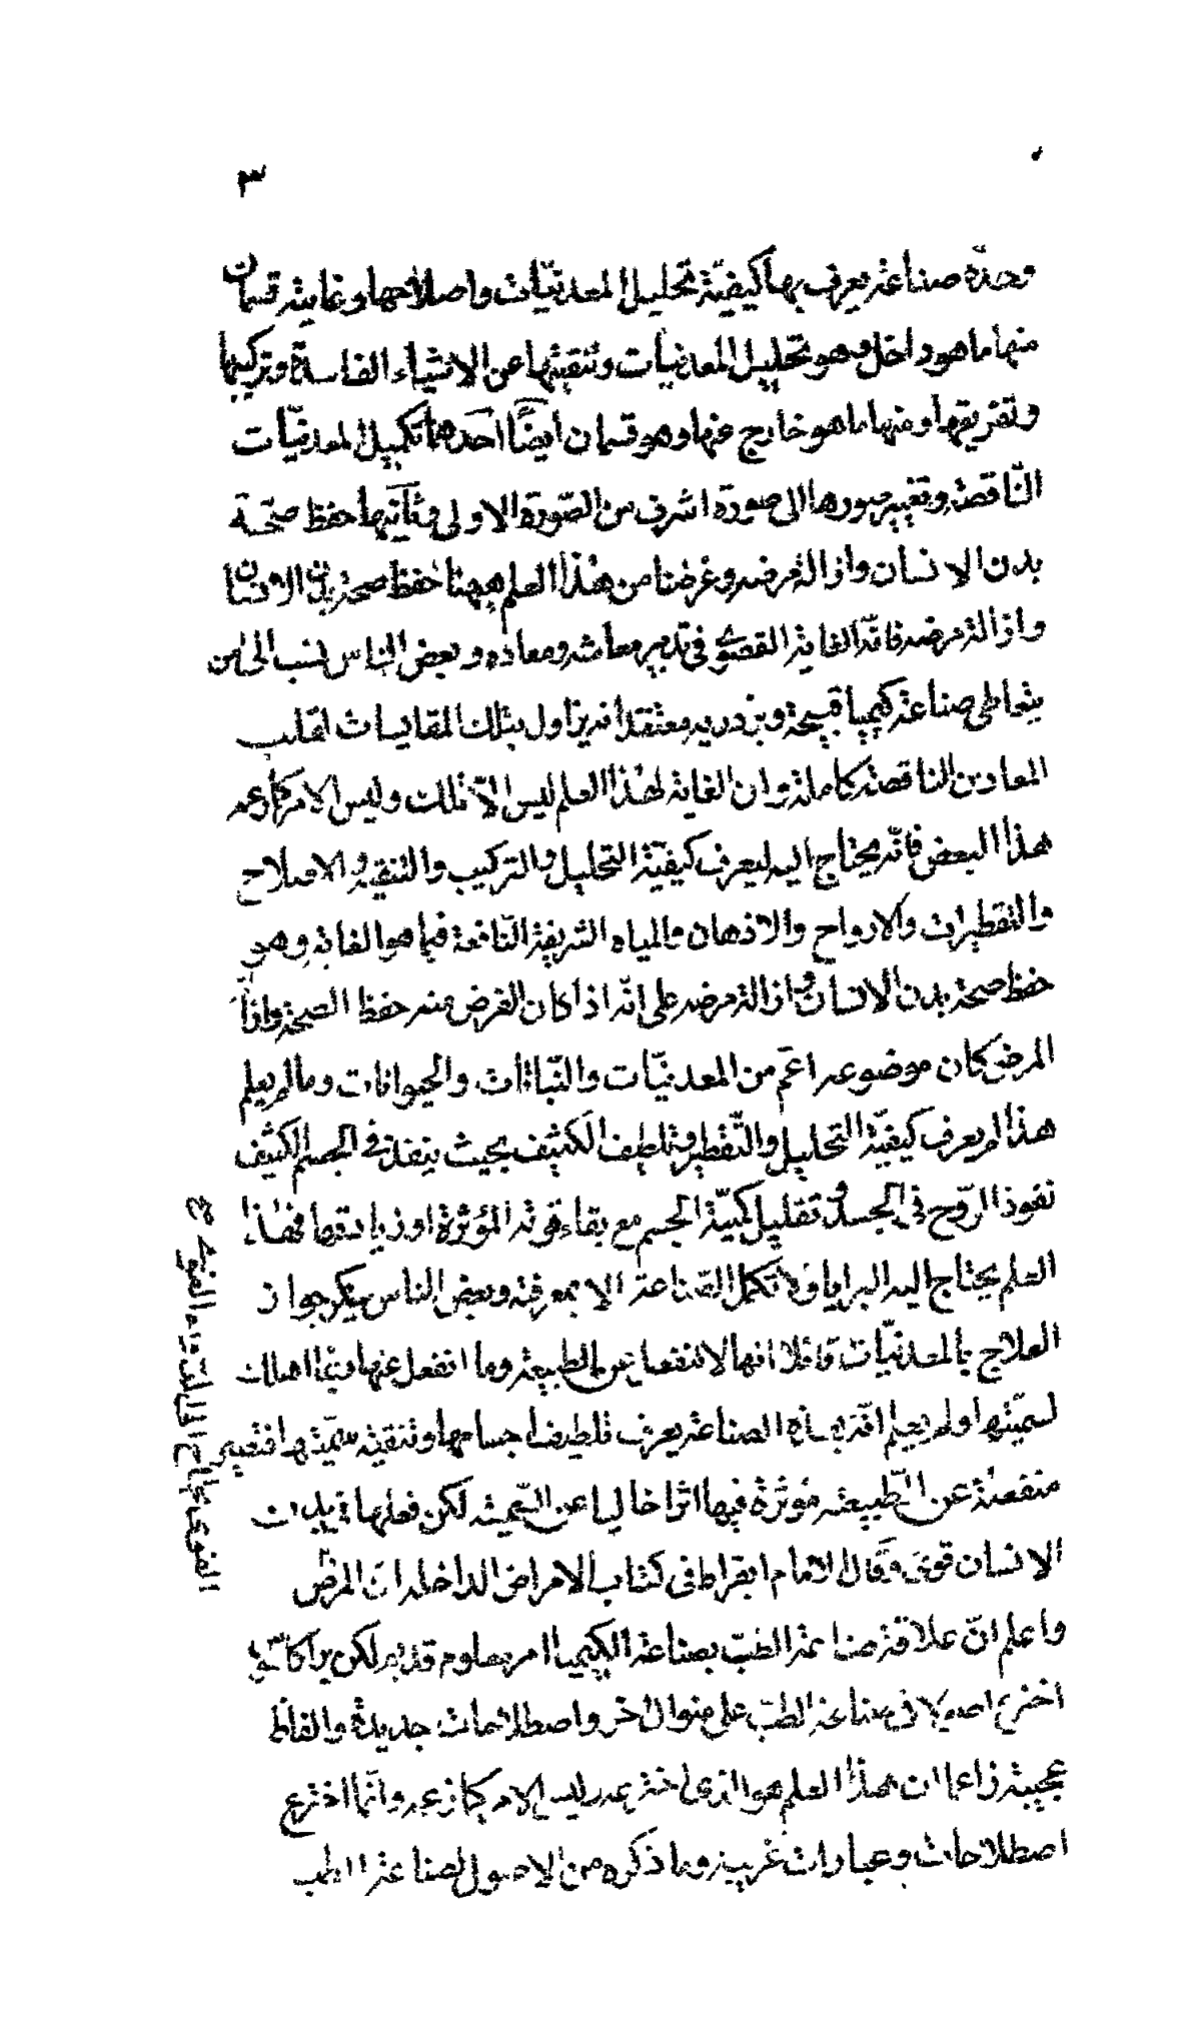 ٣
وحدّه صناعة يعرف بها كيفيّة تحليل المعدنيّات واصلاحها وغايته قسمان
منها ما هو داخل وهو تحليل المعدنيات وتنقيتها عن الاشياء الفاسدة وتركيبها
وتفريقها ومنها ما هو خارج عنها وهو قسمان ايضًا احدهما تكميل المعدنيّات
النّاقصة وتغيير صورها الى صورة اشرف من الصّورة الاولى وثانيها حفظ صحّة
بدن الانسان وازالة مرضه وغرضنا من هذا العلم ههنا حفظ صحة بدن الانسان
وازالة مرضه فانّه الغاية القصوى فى تدبير معاشه ومعاده وبعض الناس ينسب الى من
يتعاطى صناعة كيميا قبيحة ويزدريه معتقدا انه يزاول بتلك المقايسات لقلب
المعادن الناقصة كاملة وان الغاية لهذا العلم ليس الّا تلك وليس الامر كما زعمه
هذا البعض فانّه يحتاج اليه ليعرف كيفيّة التحليل والتركيب والتنقية والاصلاح
والتقطيرات والارواح والادهان والمياه الشريفة النّافعة فيما هو الغاية وهو
حفظ صحة بدن الانسان وازالة مرضه على انّه اذا كان الغرض منه حفظ الصحة وازالة
المرض كان موضوعه اعمّ من المعدنيّات والنّباتات والحيوانات وما لم يعلم
هذا لم يعرف كيفيّة التحليل والتّقطير وتلطيف الكثيف بحيث ينفذ فى الجسم الكثيف
نفوذ الرّوح فى الجسد وتقليل كميّة الجسم مع بقاء قوته المؤثرة او زيادتها فهذا
العلم يحتاج اليه البرايا ولا تكمل الصّناعة الا بمعرفته وبعض الناس ينكر جواز
العلاج بالمعدنيّات قائلا انها لا تنفعل عن الطبيعة وما انفعل عنها فيها اهلاك
لسمّيتها ولم يعلم انّه بهذه الصناعة يعرف تلطيف اجسامها وتنقية سمّيتها فتصير
منفعلة عن الطّبيعة مؤثرة فيها اثرا خاليا عن السّمية لكن فعلها فى بدن
الانسان قوى وقال الامام ابقراط فى كتاب الامراض الداخلة ان المرض
القوى يحتاج الى التدبير القوى صح
واعلم انّ علاقة صناعة الطبّ بصناعة الكيميا امر معلوم قديم لكن براكلسوس
اخترع اصولا فى صناعة الطبّ على منوال اخر واصطلاحات جديدة والفاظ
عجيبة زاعما ان هذا العلم هو الذى اخترعه وليس الامر كما زعمه وانّما اخترع
اصطلاحات وعبارات غريبة وما ذكره من الاصول لصناعة الطب